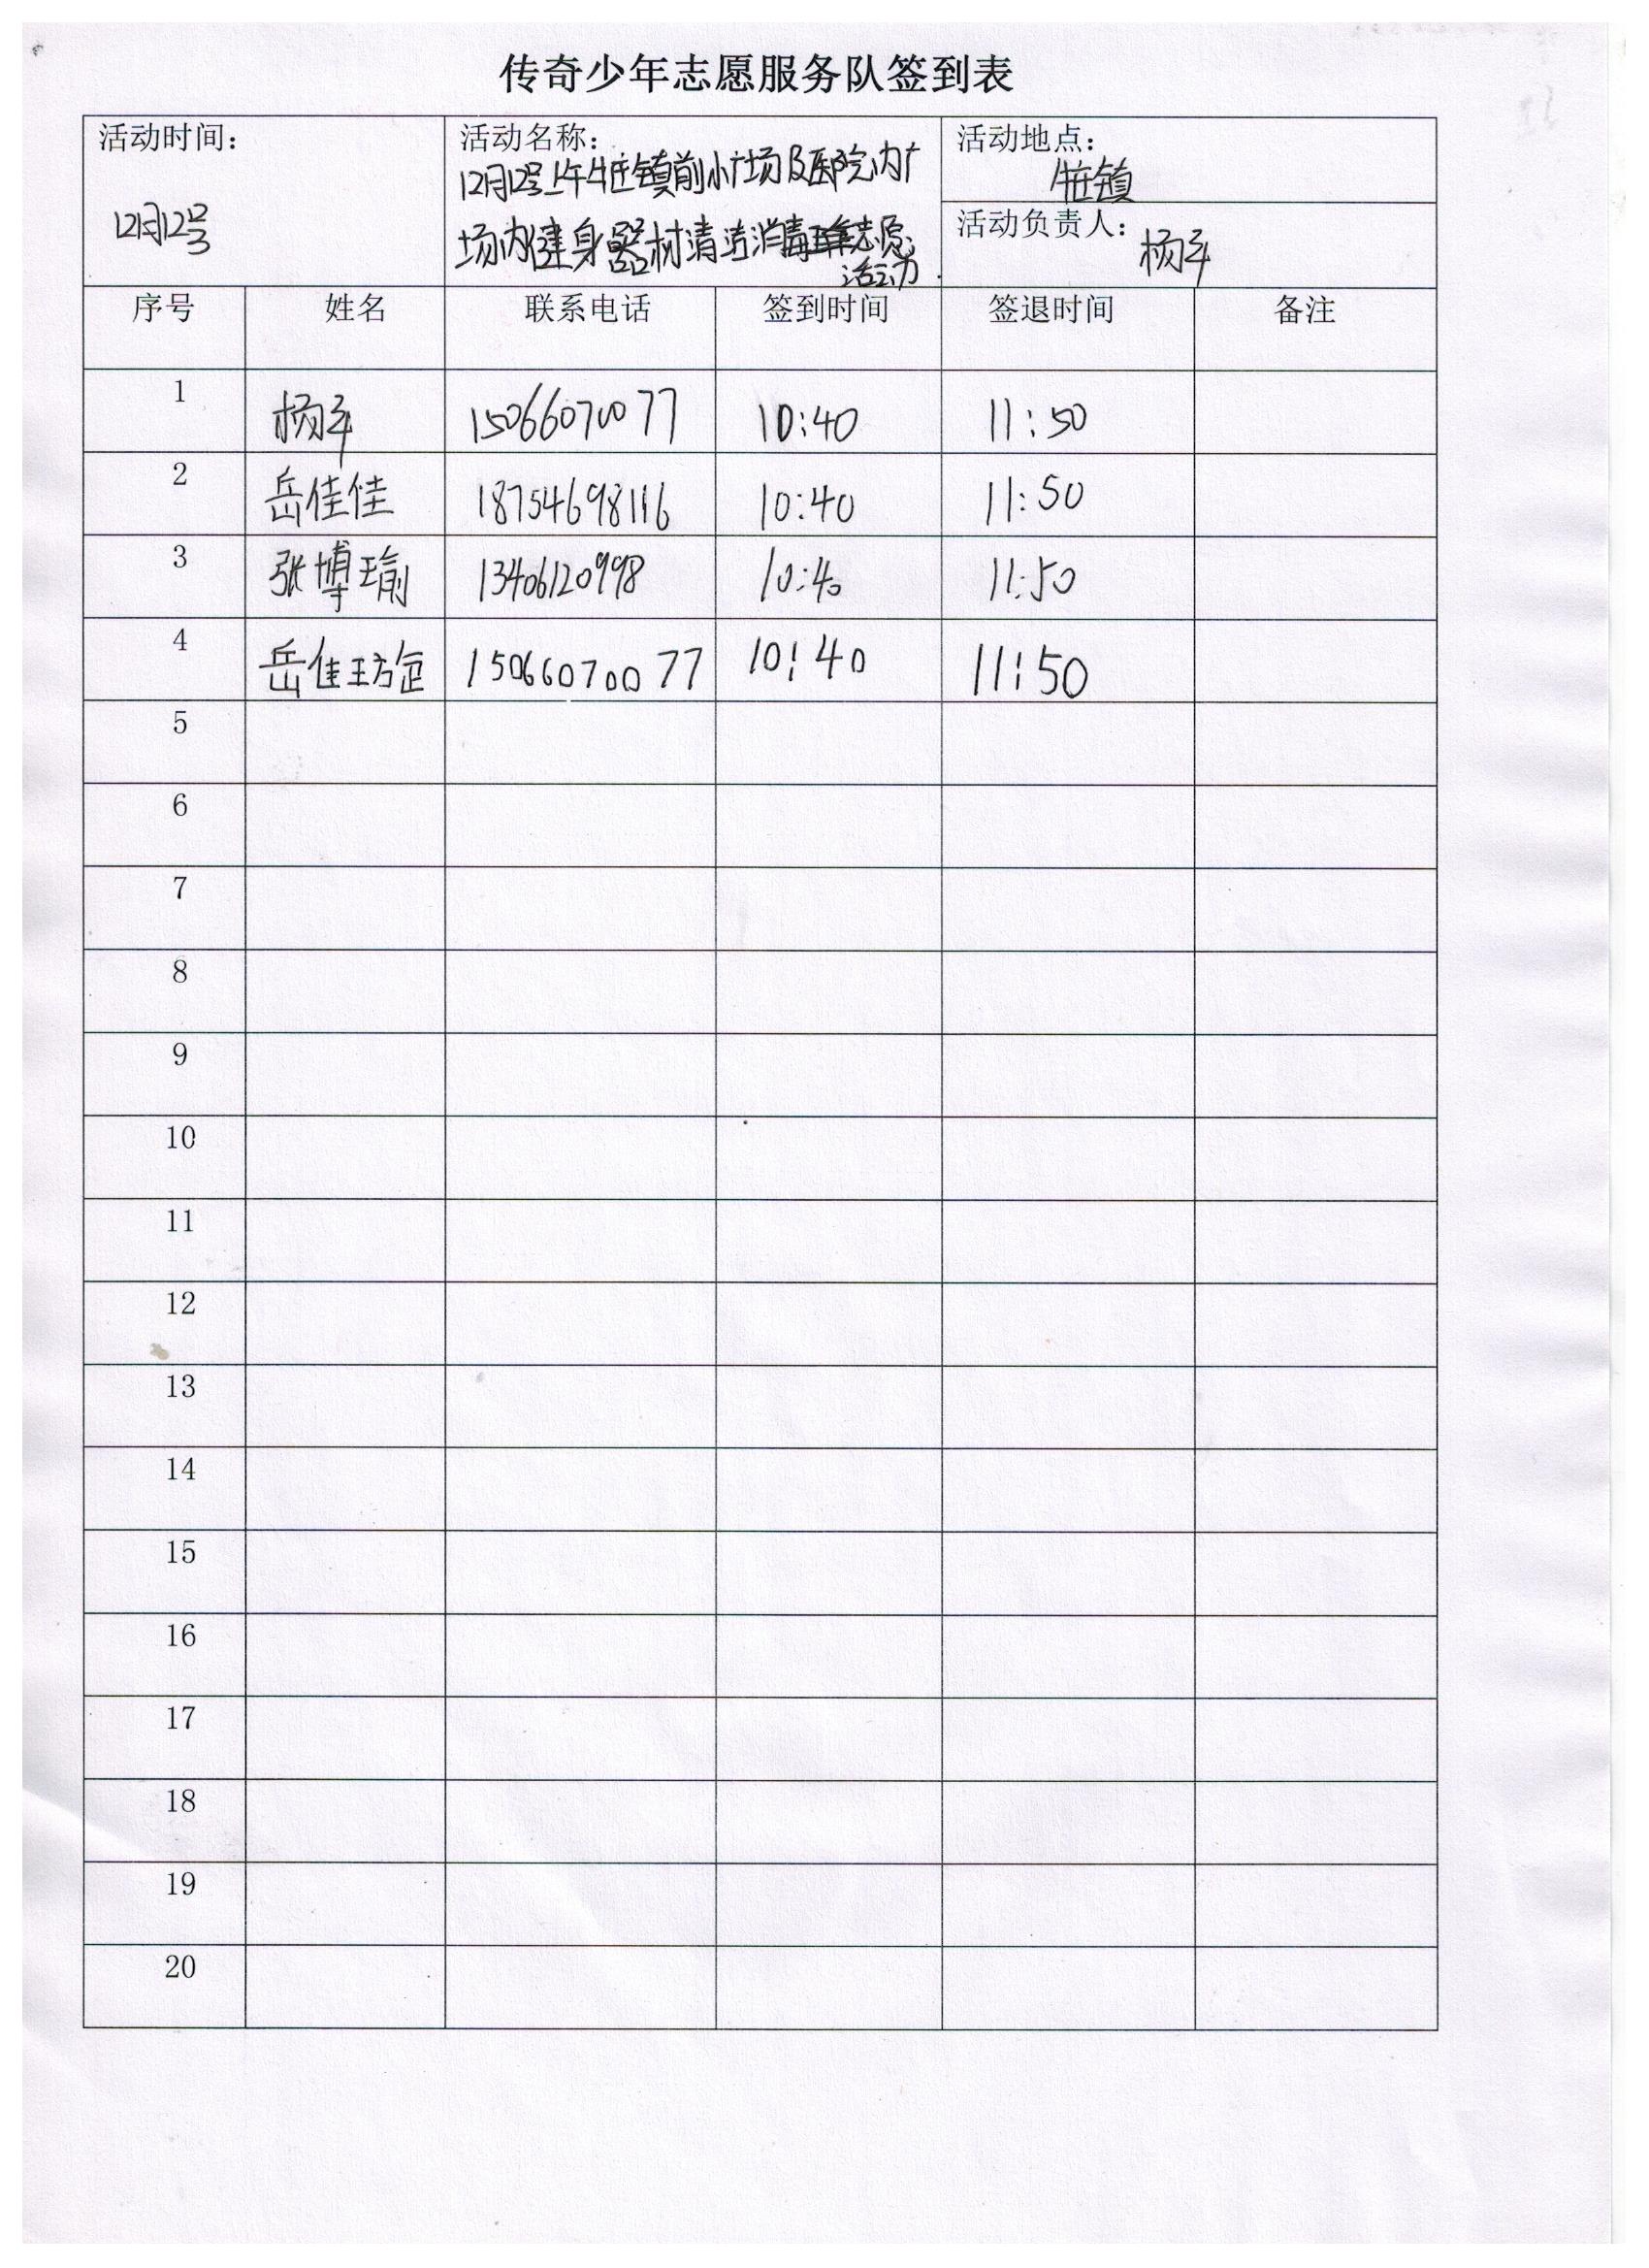 传奇少年志愿服务队签到表
活动时间：
12月12号
活动名称：
12月12号上午牛庄镇前小广场及医院内广
场内健身器材清洁消毒志愿
活动
活动地点：
牛庄镇
活动负责人：
杨平
序号 姓名 联系电话 签到时间 签退时间 备注
1 杨平 15066070077 10:40 11:50
2 岳佳佳 18754698116 10:40 11:50
3 张博瑜 13406120998 10:40 11:50
4 岳佳璇 15066070077 10:40 11:50
5
6
7
8
9
10
11
12
13
14
15
16
17
18
19
20